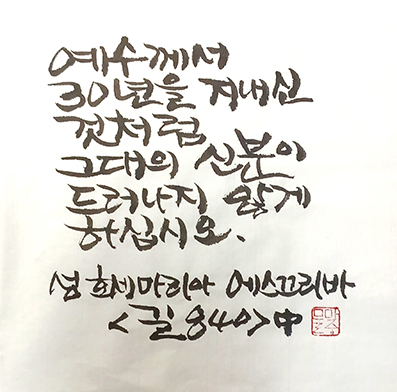 예수께서
30년을 지내신
것처럼
그대의 신분이
드러나지 않게
하십시오.
성 호세마리아 에스끄리바
<길 840> 中